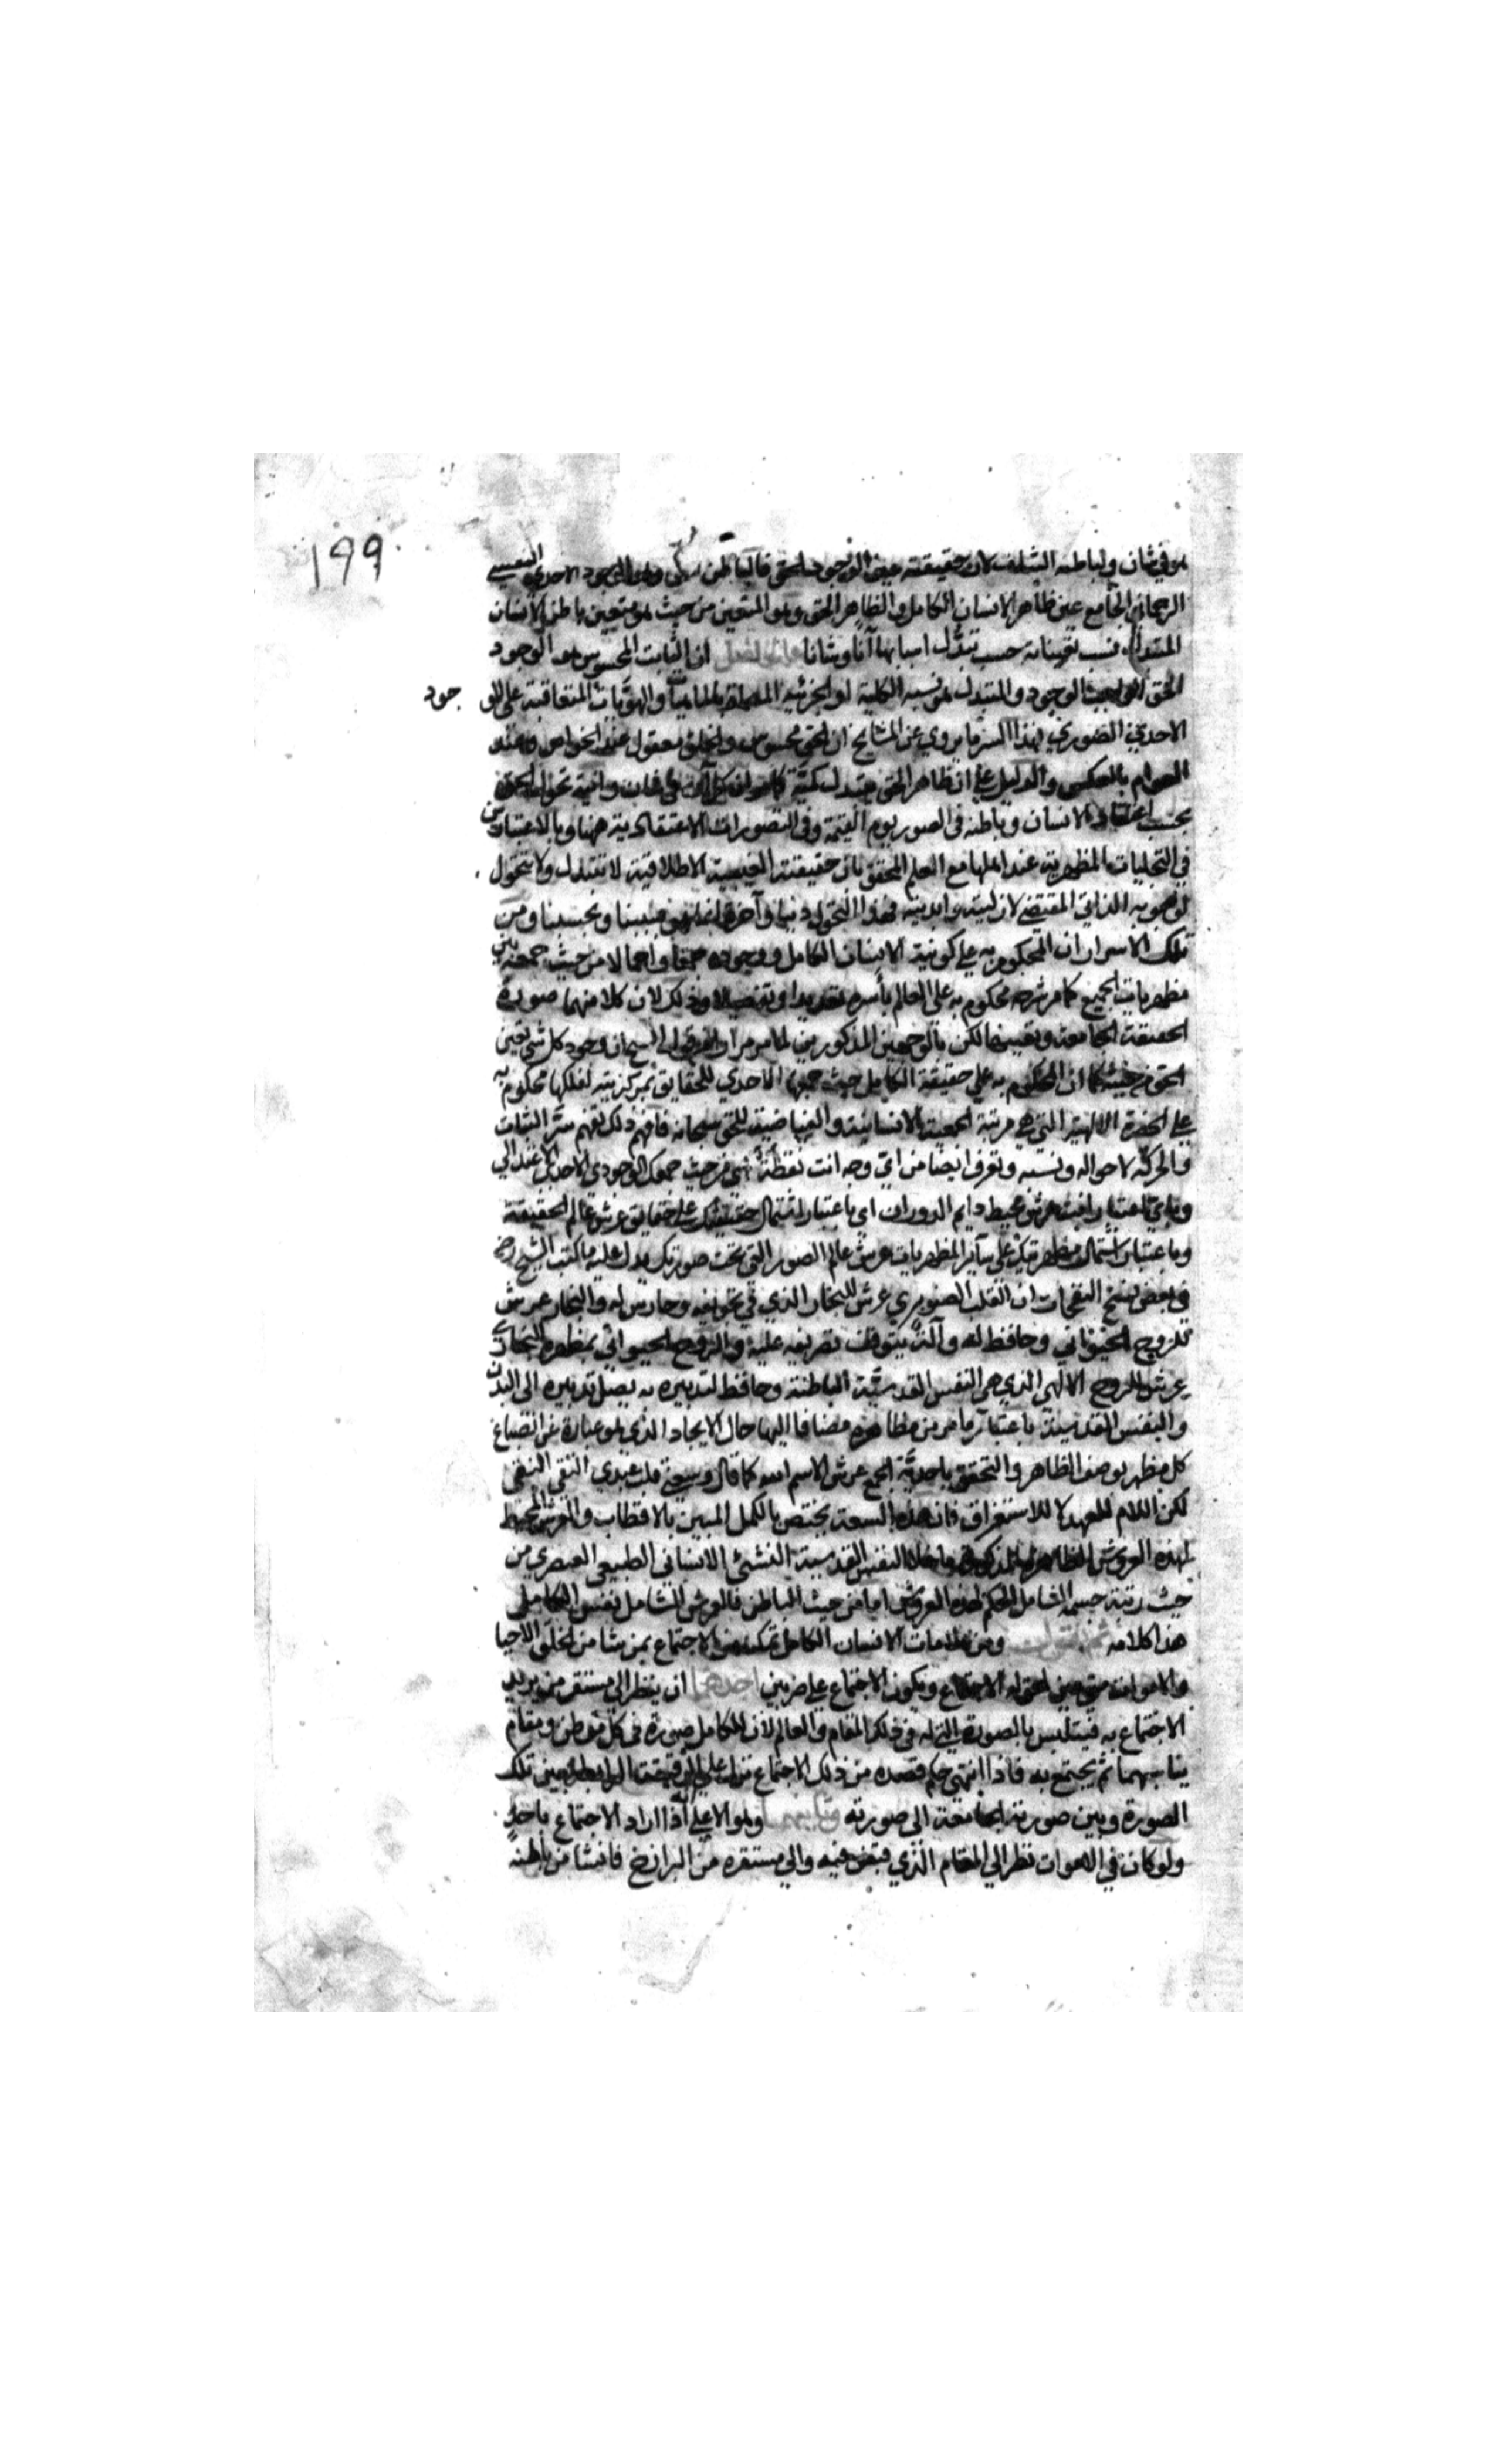 ١٩٩
هو في شان ولباطنه الثبات لان حقيقته عين الوجود الحق فالباطن وهو الوجود الاحدي النفسي
الرحماني الجامع عين ظاهر الانسان الكامل والظاهر الحق وهو المتعين من حيث هو متعين باطن الانسان
المتبدل نسب تعيناته حسب تبدل اسبابها آنا وشانا ان الثابت المحسوس هو الوجود
الحق الواجب الوجود والمتبدل هو نسبه الكلية او الجزئية المسماة بالماهيات والهويات المتعاقبة على الو جود
الاحدي الصوري بهذا السر ما يروي عن المشايخ ان الحق محسوس والخلق معقول عند الخواص وعند
العوام بالعكس والدليل على ان ظاهر الحق متبدل كل آن في شان وانية تحول الحق
بحسب اعتقاد الانسان وباطنه في الصور يوم القيمة وفي التصورات الاعتقادية ههنا وبالاعتبارين
في التجليات المظهرية عند اهلها مع العلم المحقق بان حقيقته الغيبية الاطلاقية لا تتبدل ولا تتحول
لوجوبه الذاتي المقتضي لازليته وابديته فهذا التحول دنيا وآخرة انما هو بنسبتنا وبحسبنا ومن
تلك الاسرار ان المحكوم به على كونية الانسان الكامل ووجوده جمعا واجمالا من حيث جمعه بين
مظهريات الجميع كما مر شرحه محكوم به على العالم بأسره تعديدا وتفصيلا وذلك لان كلا منهما صورة
الحقيقة الجامعة وتعينها لكن بالوجهين المذكورين لما مر مرارا سبحان وجود كل شي تعين
الحق من حيثه كما ان المحكوم به على حقيقة الكامل حيث جمعها الاحدي للحقايق بمركزيته لفلكها محكوم به
على الحضرة الالهية التي هي مرتبة الجمعية الانسانية والفياضية للحق سبحانه فافهم ذلك تفهم سر الثبات
والحركة لاحواله ونسبه وتعرف ايضا من اي وجه انت نقطة اي من حيث جمعك الوجودي الاحدي الاعتدالي
وباي اعتبار انت عرش محيط دايم الدوران اي باعتبار اشتمال حقيقتك على حقايق عرش عالم الحقيقة
وباعتبار اشتمال مظهريتك على ساير المظهريات عرش عالم الصور التي تحت صورتك يدل عليه ما كتب الشيخ رض
في بعض نسخ النفحات ان القلب الصنوبري عرش للبخار الذي في تجويفه وحارس له والبخار عرش
للروح الحيواني وحافظ له وآلة يتوقف تصريفه عليه والروح الحيواني بمظهره البخاري
عرش الروح الالهي الذي هي النفس القدسية الباطنة وحافظ لتدبيره به يصل تدبيره الى البدن
والنفس القدسية باعتبار ما مر من مظاهره مضافا اليها حال الايجاد الذي هو عبارة عن انصباغ
كل مظهر بوصف الظاهر والتحقق باحدية الجمع عرش الاسم الله كما قال وسعني قلب عبدي التقي النقي
لكن اللام للعهد لا للاستغراق فان هذه السعة يختص بالكمل المسمين بالاقطاب والعرش المحيط
لهذه العروش الظاهرة المذكورة ما خلا النفس القدسية النشئ الانساني الطبيعي العنصري من
حيث رتبة جسمه الشامل الحكم لهذه العروش اما من حيث الباطن فالعرش الشامل نفس الكامل
هذا كلامه ثم نقول ومن علامات الانسان الكامل تمكنه من الاجتماع بمن شا من الخلق الاحيا
والاموات متى حين الاجتماع ويكون الاجتماع على ضربين احدهما ان ينظر الى مستقر من يريد
الاجتماع به فيتلبس بالصورة التي له في ذلك المقام والعالم لان للكامل صورة في كل موطن ومقام
يناسبهما ثم يجتمع به فاذا انتهى حكم قصده من ذلك الاجتماع نزل على الرقيقة الرابطة بين تلك
الصورة وبين صورته الجامعة الى صورته وثانيهما وهو الاعلى اذا اراد الاجتماع باحد
ولو كان في الاموات نظر الى المقام الذي قبض فيه والى مستقره من البرازخ فانشا من باطنه